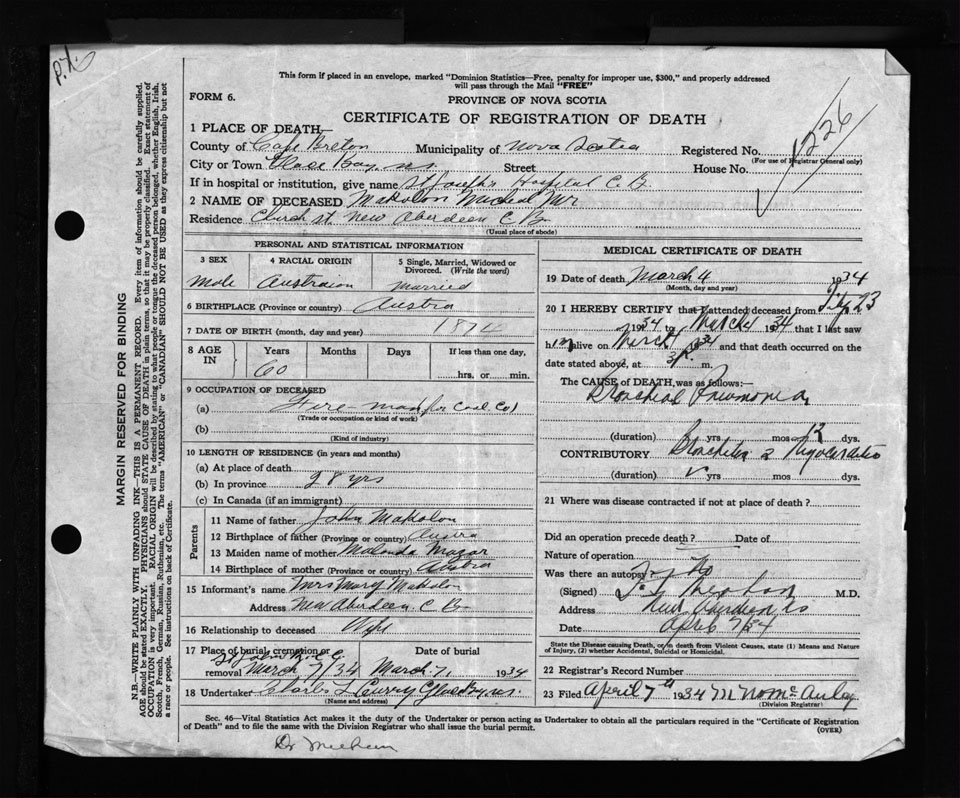 P.X.
This form if placed in an envelope, marked "Dominion Statistics—Free, penalty for improper use, $300," and properly addressed
will pass through the Mail "FREE"
FORM 6.
PROVINCE OF NOVA SCOTIA
CERTIFICATE OF REGISTRATION OF DEATH
226
MARGIN RESERVED FOR BINDING
N.B.—WRITE PLAINLY WITH UNFADING INK—THIS IS A PERMANENT RECORD. Every item of information should be carefully supplied.
AGE should be stated EXACTLY. PHYSICIANS should STATE CAUSE OF DEATH in plain terms, so that it may be properly classified. Exact statement of
OCCUPATION is very important. RACIAL ORIGIN will be described by stating to what people or tongue the deceased person belonged, whether English, Irish,
Scotch, French, German, Russian, Ruthenian, etc. The terms "AMERICAN" or "CANADIAN" SHOULD NOT BE USED as they express citizenship but not
a race or people. See instructions on back of Certificate.
1 PLACE OF DEATH—
County of Cape Breton Municipality of Nova Scotia Registered No.
(For use of Registrar General only)
City or Town Glace Bay, N.S. Street House No.
If in hospital or institution, give name St Joseph's Hospital C.B.
2 NAME OF DECEASED Makolon Micheal Mr
Residence Church st New Aberdeen C B
(Usual place of abode)
PERSONAL AND STATISTICAL INFORMATION
3 SEX 4 RACIAL ORIGIN 5 Single, Married, Widowed or Divorced. (Write the word)
Male Austraion Married
6 BIRTHPLACE (Province or country) Austra
7 DATE OF BIRTH (month, day and year) 1874
8 AGE IN Years Months Days If less than one day,
60 hrs. or min.
9 OCCUPATION OF DECEASED
(a) Fire man for Coal Co
(Trade or occupation or kind of work)
(b)
(Kind of industry)
10 LENGTH OF RESIDENCE (in years and months)
(a) At place of death
(b) In province 28 yrs
(c) In Canada (if an immigrant)
Parents
11 Name of father John Makolon
12 Birthplace of father (Province or country) Austra
13 Maiden name of mother Malonda Mazar
14 Birthplace of mother (Province or country) Austra
15 Informant's name Mrs Mary Makolon
Address New Aberdeen C B
16 Relationship to deceased Wife
17 Place of burial, cremation or removal St Johns
March 7/34
Date of burial
March 7, 1934
18 Undertaker Charles L Curry Glace Bay N.S.
(Name and address)
MEDICAL CERTIFICATE OF DEATH
19 Date of death March 4 1934
(Month, day and year)
20 I HEREBY CERTIFY that I attended deceased from Feb 23
1934 to March 4 1934 that I last saw
him alive on March 1934 and that death occurred on the
date stated above, at 3 P. m.
The CAUSE of DEATH was as follows:—
Bronchial Pneumonia
(duration) yrs mos 12 dys.
CONTRIBUTORY Bronchitis & Myocarditis
(duration) yrs mos dys.
21 Where was disease contracted if not at place of death?
Did an operation precede death? Date of
Nature of operation
Was there an autopsy? No
(Signed) M.D.
Address New Aberdeen
Date April 7/34
State the Disease causing Death, or in death from Violent Causes, state (1) Means and Nature
of Injury, (2) whether Accidental, Suicidal or Homicidal.
22 Registrar's Record Number
23 Filed April 7th 1934 McAulay
(Division Registrar)
Sec. 46—Vital Statistics Act makes it the duty of the Undertaker or person acting as Undertaker to obtain all the particulars required in the "Certificate of Registration
of Death" and to file the same with the Division Registrar who shall issue the burial permit.
(OVER)
Dr